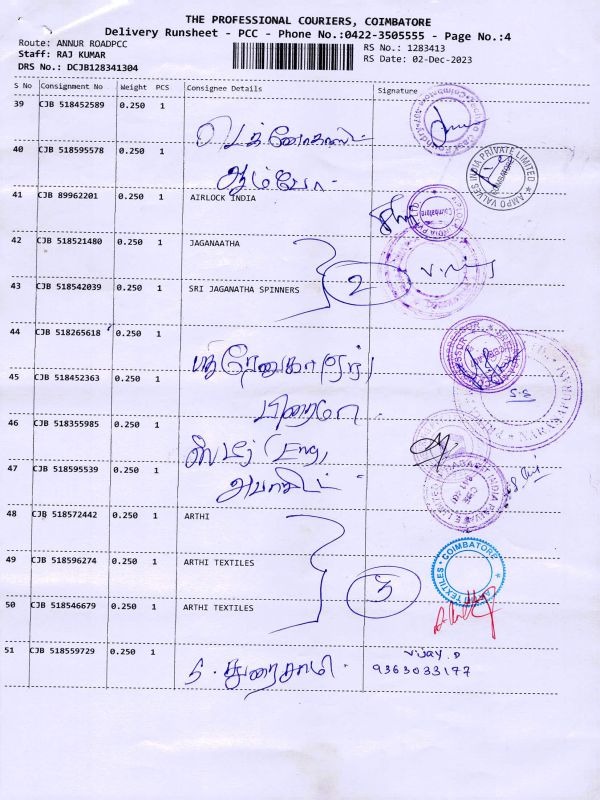 THE PROFESSIONAL COURIERS, COIMBATORE
Delivery Runsheet - PCC - Phone No.:0422-3505555 - Page No.:4
Route: ANNUR ROADPCC
RS No.: 1283413
Staff: RAJ KUMAR
RS Date: 02-Dec-2023
DRS No.: DCJB128341304
S No Consignment No Weight PCS Consignee Details Signature
39 CJB 518452589 0.250 1
40 CJB 518595578 0.250 1
AMPO VALVES INDIA PRIVATE LIMITED
41 CJB 89962201 0.250 1 AIRLOCK INDIA
42 CJB 518521480 0.250 1 JAGANAATHA
2
43 CJB 518542039 0.250 1 SRI JAGANATHA SPINNERS
44 CJB 518265618 0.250 1
45 CJB 518452363 0.250 1
46 CJB 518355985 0.250 1
47 CJB 518595539 0.250 1
48 CJB 518572442 0.250 1 ARTHI
49 CJB 518596274 0.250 1 ARTHI TEXTILES
COIMBATORE
TEXTILES
3
50 CJB 518546679 0.250 1 ARTHI TEXTILES
51 CJB 518559729 0.250 1 துரைசாமி
Vijay. D
9363033177